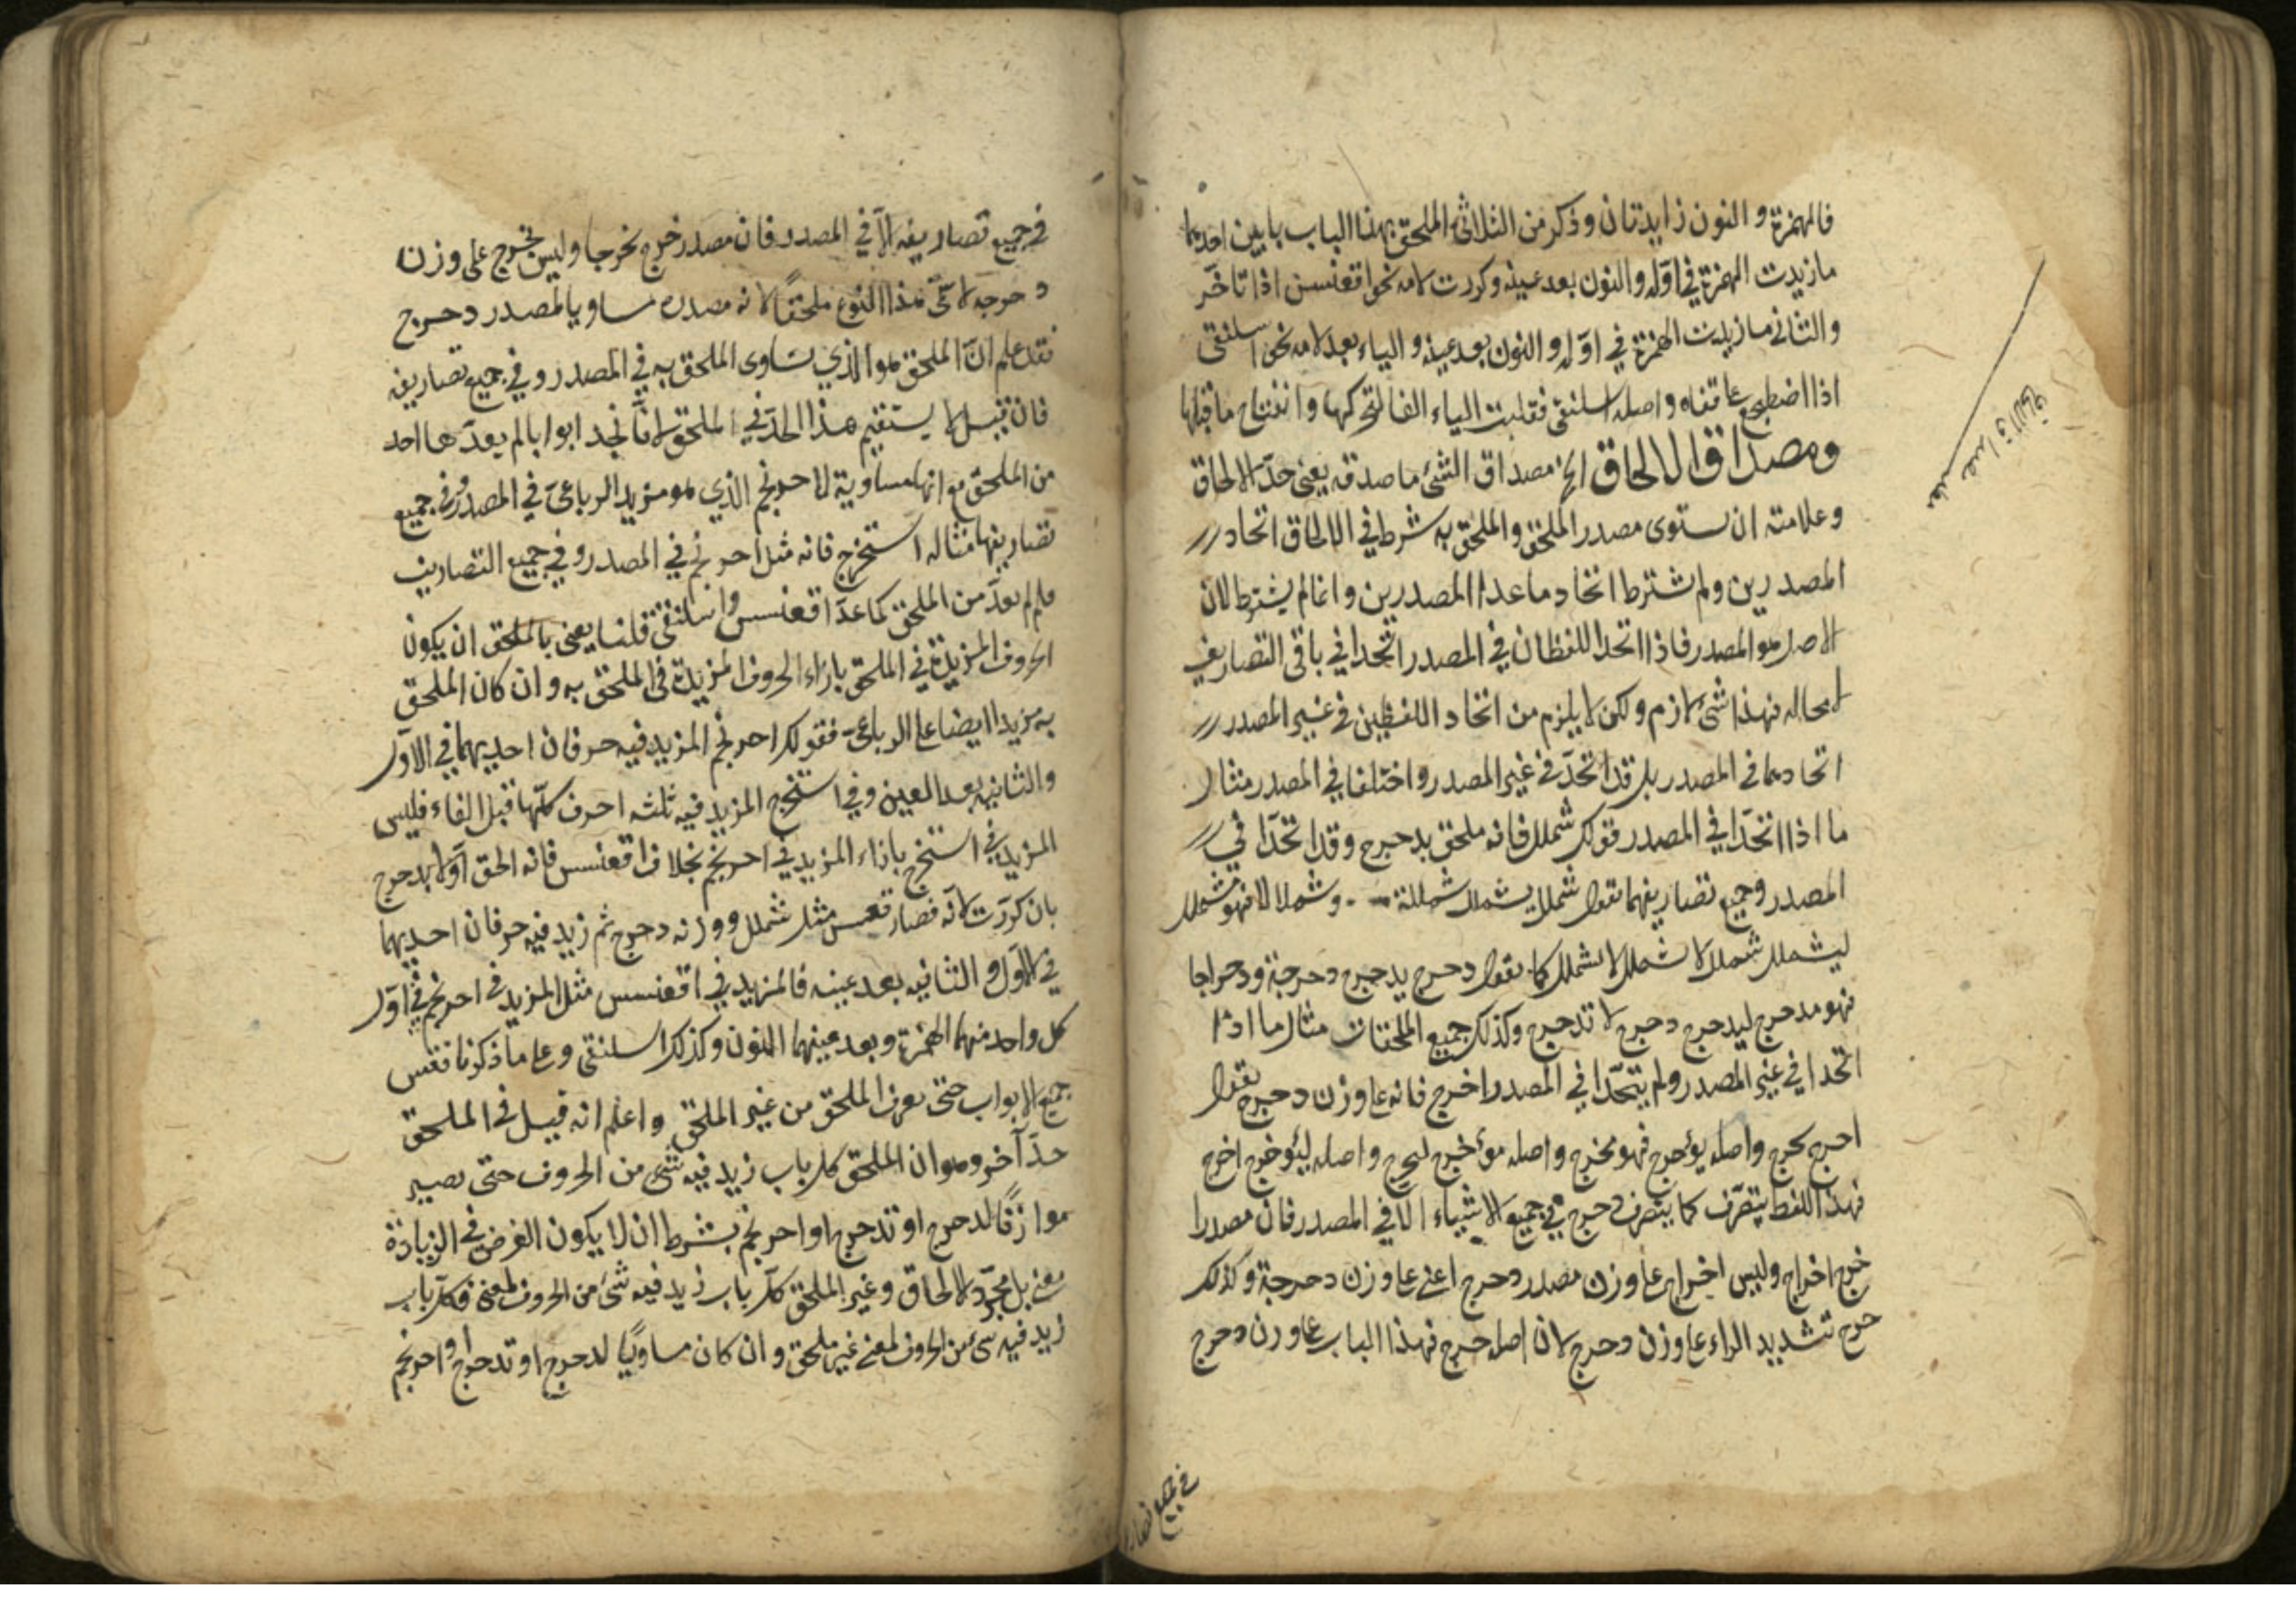 فالهمزة و النون زايدتان وذكر من الثلاثى الملحق بهذا الباب بابين احديهما
ما زيدت الهمزة في اوّله والنون بعد عينه وكررت لامه نحو اقعنسس اذا تاخّر
والثاني ما زيدت الهمزة في اوّله و النون بعد عينه و الياء بعد لامه نحو اسلنقى
اذا اضطجع على قفاه واصله اسلنقى فقلبت الياء الفا لتحركها وانفتاح ما قبلها
ومصداق الالحاق الخ مصداق الشئ ما صدقه يعنى حدّ الالحاق
وعلامته ان ستوى مصدر الملحق والملحق به شرط في الالحاق اتحاد
المصدرين ولم شترط اتحاد ما عدا المصدرين و انما لم يشترط لان
الاصل هو المصدر فاذا اتحد اللفظان في المصدر اتحدا في باقى التصاريف
لا محاله فهذا شئ لازم ولكن لا يلزم من اتحاد اللفظين في غير المصدر
اتحادهما في المصدر بل قد اتحدّ في غير المصدر واختلفا في المصدر مثال
ما اذا اتحدّا في المصدر قولك شملل فانه ملحق بدحرج وقد اتحدّا في
المصدر وجميع تصاريفهما تقول شملل يشملل شمللة وشملالا فهو مشملل
ليشملل شملل لا شملل لا تشملل كما تقول دحرج يدحرج دحرجة ودحراجا
فهو مدحرج ليدحرج دحرج لا تدحرج وكذلك جميع الملحقات مثال ما اذا
اتحدا في غير المصدر ولم يتحدّا في المصدر اخرج فانه على وزن دحرج تقول
اخرج يخرج واصله يؤخرج فهو مخرج واصله مؤخرج ليخرج واصله ليؤخرج اخرج
فهذا اللفظ يتصرّف كما يتصرف دحرج في جميع الاشياء الّا في المصدر فان مصدر
خرج اخراج وليس اخراج على وزن مصدر دحرج اعنى على وزن دحرجة وكذلك
خرج تشديد الراء على وزن دحرج لان اصله خرج فهذا الباب على وزن دحرج
في جميع تصار
في جميع تصاريفه الّا في المصدر فان مصدر خرج تخريجا وليس تخريج على وزن
دحرجه لا سمّى هذا النوع ملحقاً لانه مصدره مساويا لمصدر دحرج
فقد علم انّ الملحق هو الذي يساوى الملحق به في المصدر وفي جميع تصاريفه
فان قيل لا يستقيم هذا الحدّ في الملحق لانّا نجد ابوابا لم يعدّها احد
من الملحق مع انها مساوية لاحرنجم الذي هو مزيد الرباعى في المصدر وفي جميع
تصاريفها مثاله استخرج فانه مثل احرنجم في المصدر وفي جميع التصاريف
ولم يعدّ من الملحق كما عدّ اقعنسس واسلنقى قلنا يعنى بالملحق ان يكون
الحروف المزيدة في الملحق بازاء الحروف المزيدة في الملحق به و ان كان الملحق
به مزيدا ايضا على الرباعىّ فقولك احرنجم المزيد فيه حرفان احديهما في الاوّل
والثانيه بعد العين وفي استخرج المزيد فيه ثلثه احرف كلّها قبل الفاء فليس
المزيد في استخرج بازاء المزيد في احرنجم بخلاف اقعنسس فانه الحق اوّلا بدحرج
بان كررّت لامه فصار قعسس مثل شملل ووزنه دحرج ثم زيد فيه حرفان احديهما
في الاوّل و الثانيه بعد عينه فالمزيد في اقعنسس مثل المزيد في احرنجم في اوّل
كل واحد منهما الهمزة وبعد عينهما النون وكذلك اسلنقى وعلى ما ذكرنا فقس
جميع الابواب حتى تعرف الملحق من غير الملحق واعلم انه قيل في الملحق
حدّ آخر وهو ان الملحق كل باب زيد فيه شئ من الحروف حتى تصير
موازنًا لدحرج او تدحرج او احرنجم بشرط ان لا يكون الغرض في الزيادة
معنى بل مجرّد الالحاق وغير الملحق كلّ باب زيد فيه شئ من الحروف لمعنى فكلّ باب
زيد فيه شئ من الحروف لمعنى غير ملحق و ان كان مساويًا لدحرج او تدحرج او احرنجم